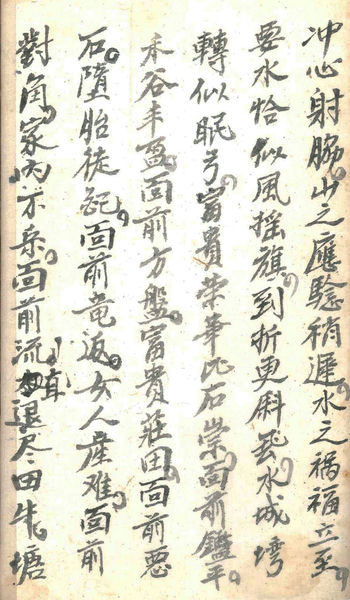 冲心射脇。山之應騐稍遲。水之禍福立至。
要水恰似風摇旗。到折更斜飛。水城塆
轉似眠弓。富貴荣華比石崇。面前鑑平。
禾谷丰盈。面前方盤。富貴莊田。面前悪
石。墮胎徒。面前竜返。女人産难。面前
對角。家内不柔。面前流直。退尽田牛。塘